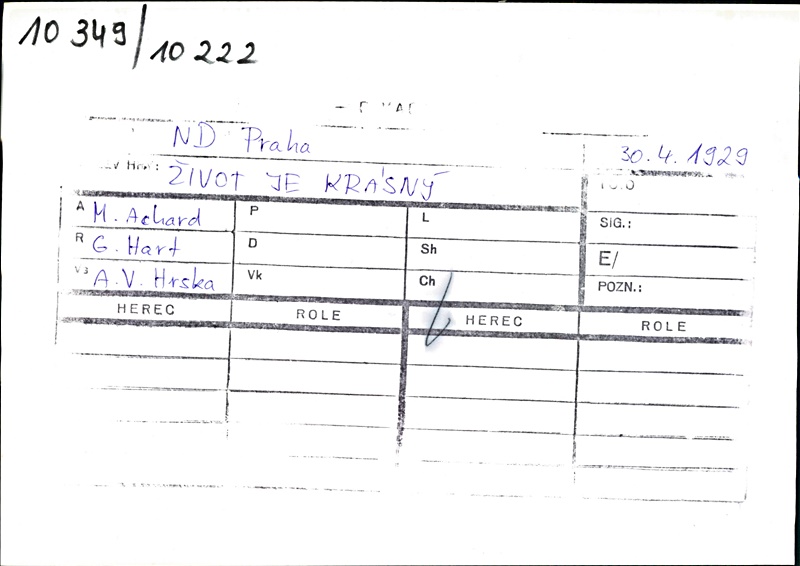 10 349/10 222
ND Praha 30.4.1929
ŽIVOT JE KRÁSNÝ
A M. Achard P L SIG.:
R G. Hart D Sh E/
A.V. Hrska Vk Ch POZN.:
HEREC ROLE HEREC ROLE